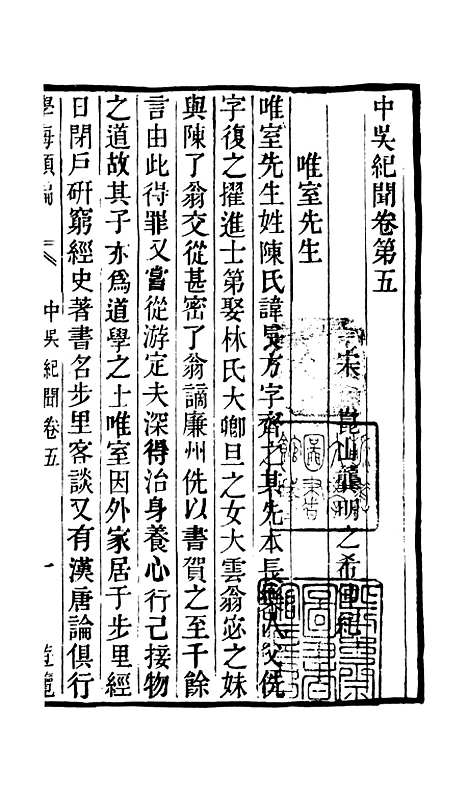 中吳紀聞卷第五
宋 崑山龔明之希仲紀
唯室先生
唯室先生姓陳氏諱長方字齊之其先本長樂人父侁
字復之擢進士第娶林氏大卿旦之女大雲翁宓之妹
與陳了翁交從甚密了翁謫廉州侁以書賀之至千餘
言由此得罪又嘗從游定夫深得治身養心行己接物
之道故其子亦爲道學之士唯室因外家居于步里經
日閉戶硏窮經史著書名步里客談又有漢唐論俱行
學海類編 中吳紀聞卷五 一 遊覽